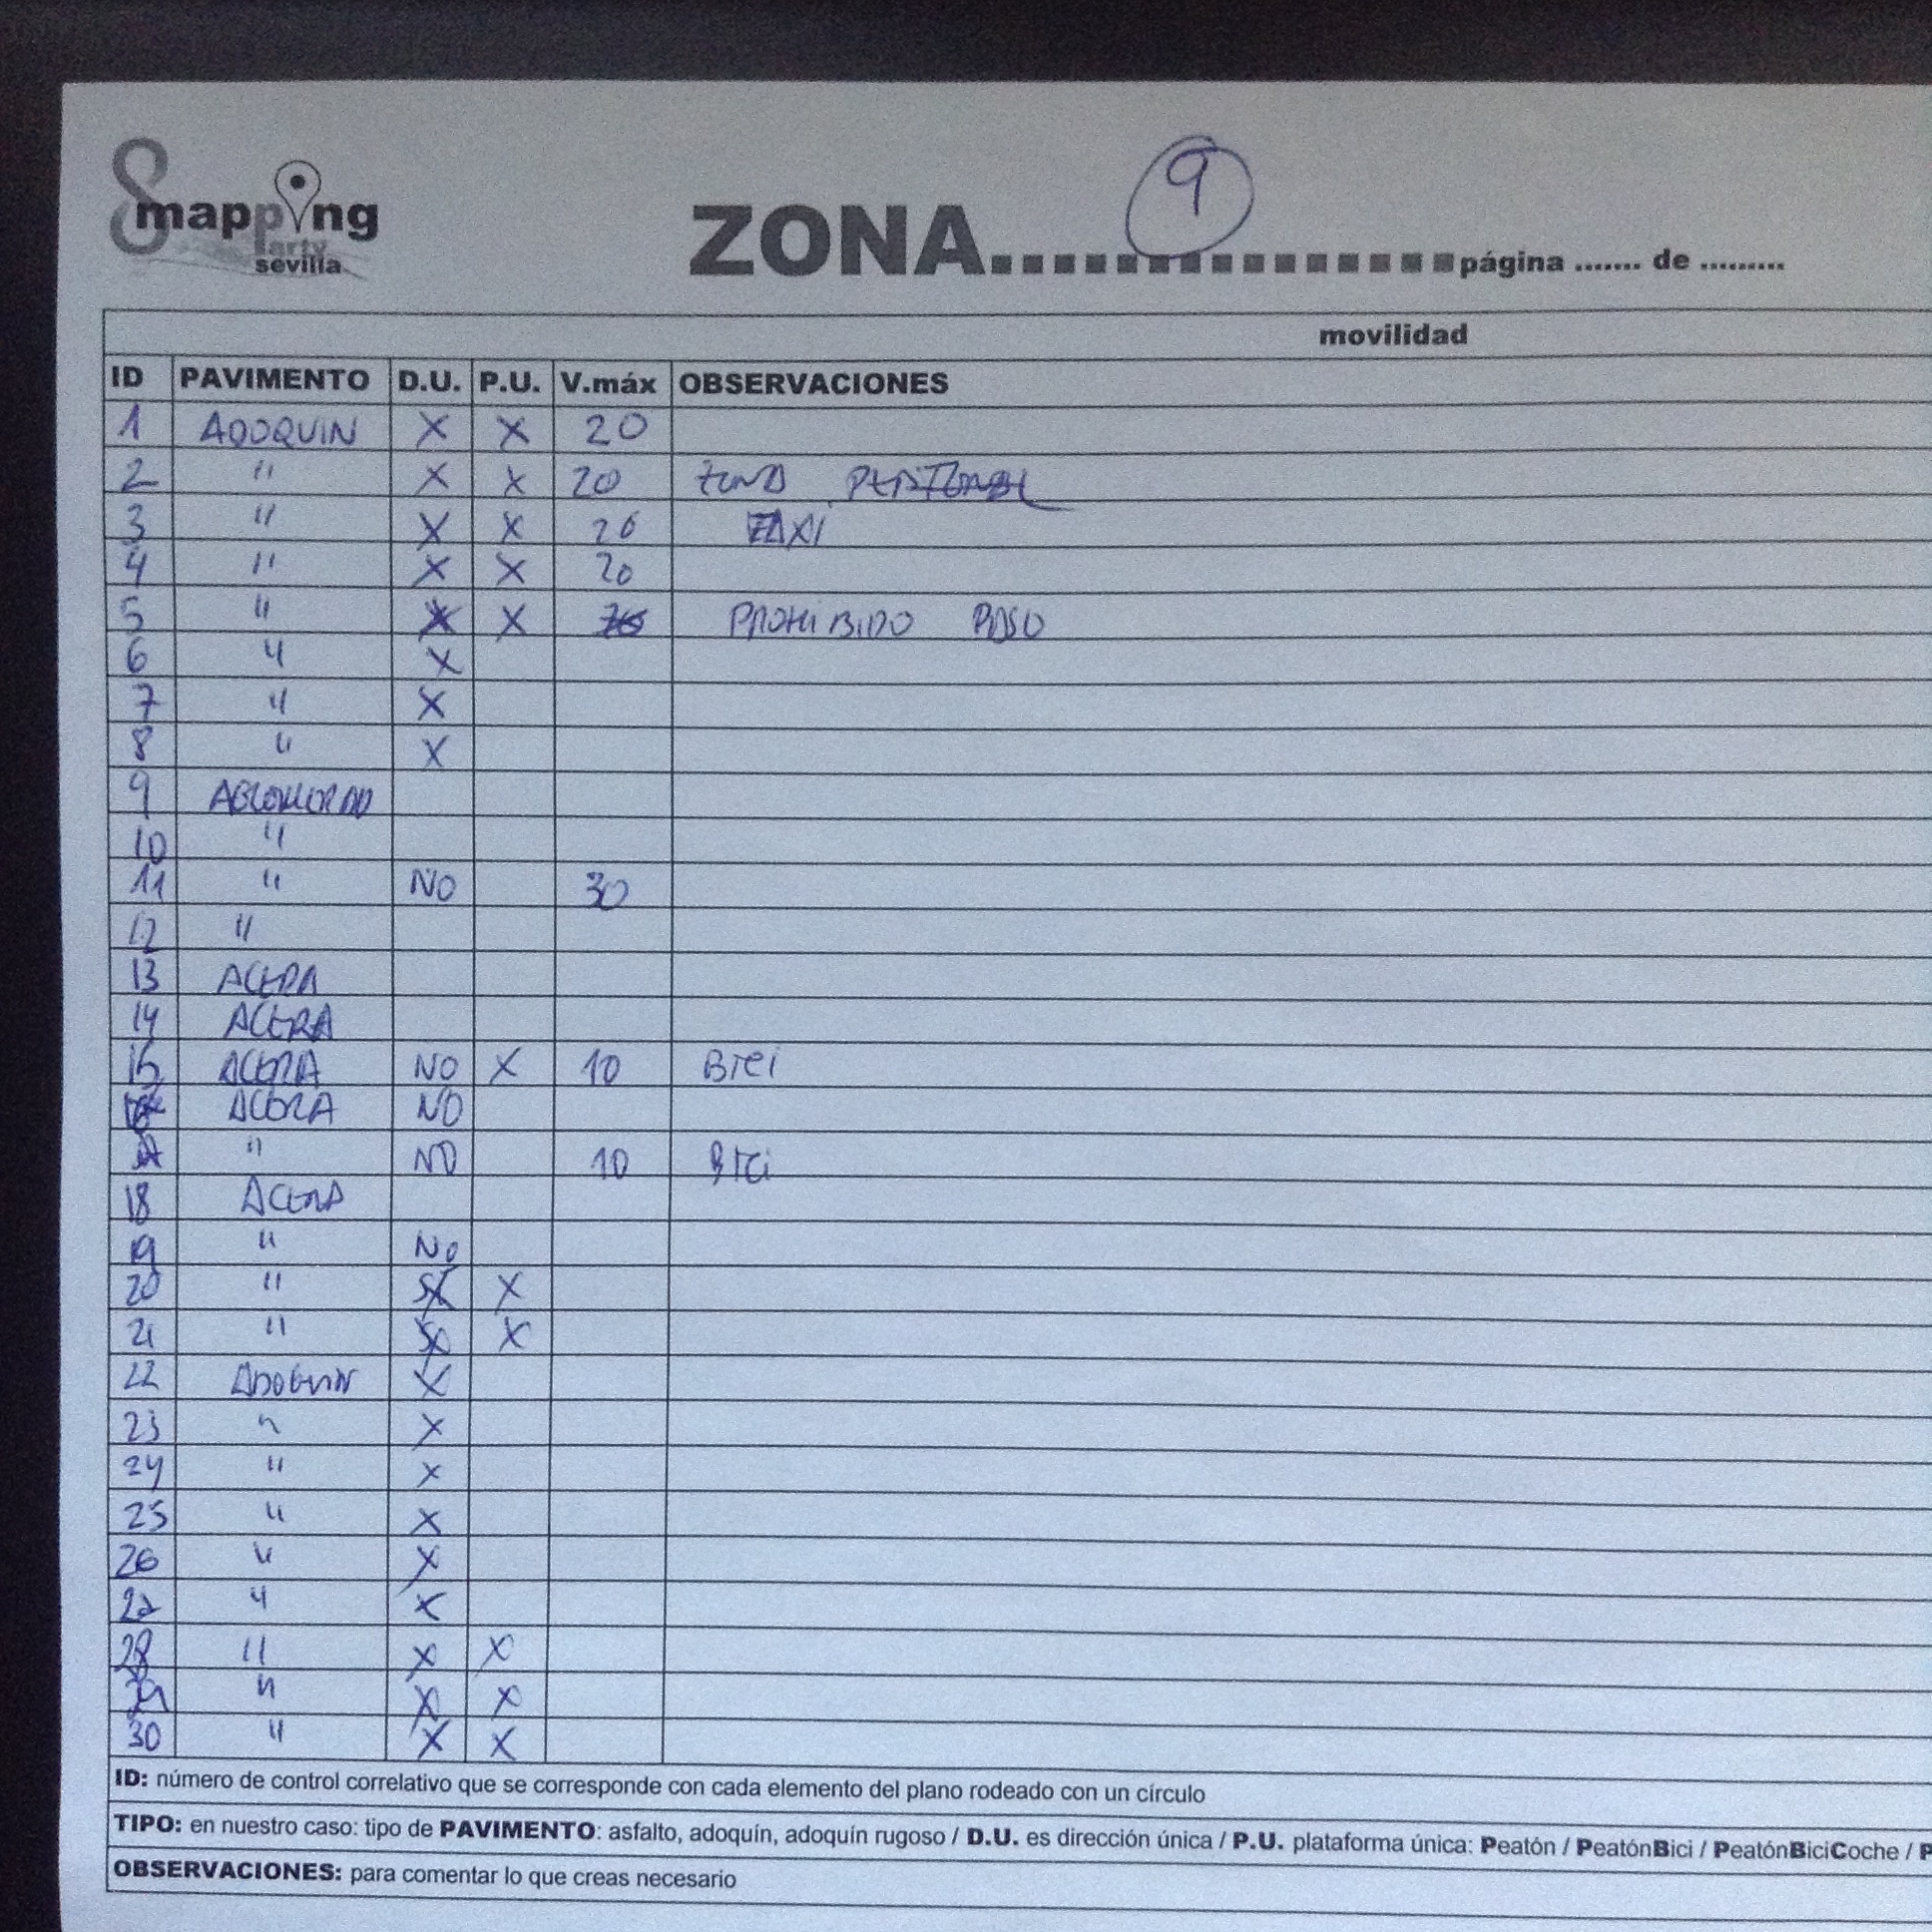 8 mapping
party
sevilla
ZONA.................. 9 página ....... de .........
movilidad
ID PAVIMENTO D.U. P.U. V.máx OBSERVACIONES
1 ADOQUIN X X 20
2 " X X 20 ZONA PEATONAL
3 " X X 20 TAXI
4 " X X 20
5 " X X PROHIBIDO PASO
6 " X
7 " X
8 " X
9
10 "
11 " NO 30
12 "
13 ACERA
14 ACERA
15 ACERA NO X 10 BICI
16 ACERA NO
17 " NO 10 BICI
18 ACERA
19 " No
20 " X
21 " X
22 ADOQUIN X
23 " X
24 " X
25 " X
26 " X
27 " X
28 " X X
29 " X X
30 " X X
ID: número de control correlativo que se corresponde con cada elemento del plano rodeado con un círculo
TIPO: en nuestro caso: tipo de PAVIMENTO: asfalto, adoquín, adoquín rugoso / D.U. es dirección única / P.U. plataforma única: Peatón / PeatónBici / PeatónBiciCoche / P
OBSERVACIONES: para comentar lo que creas necesario